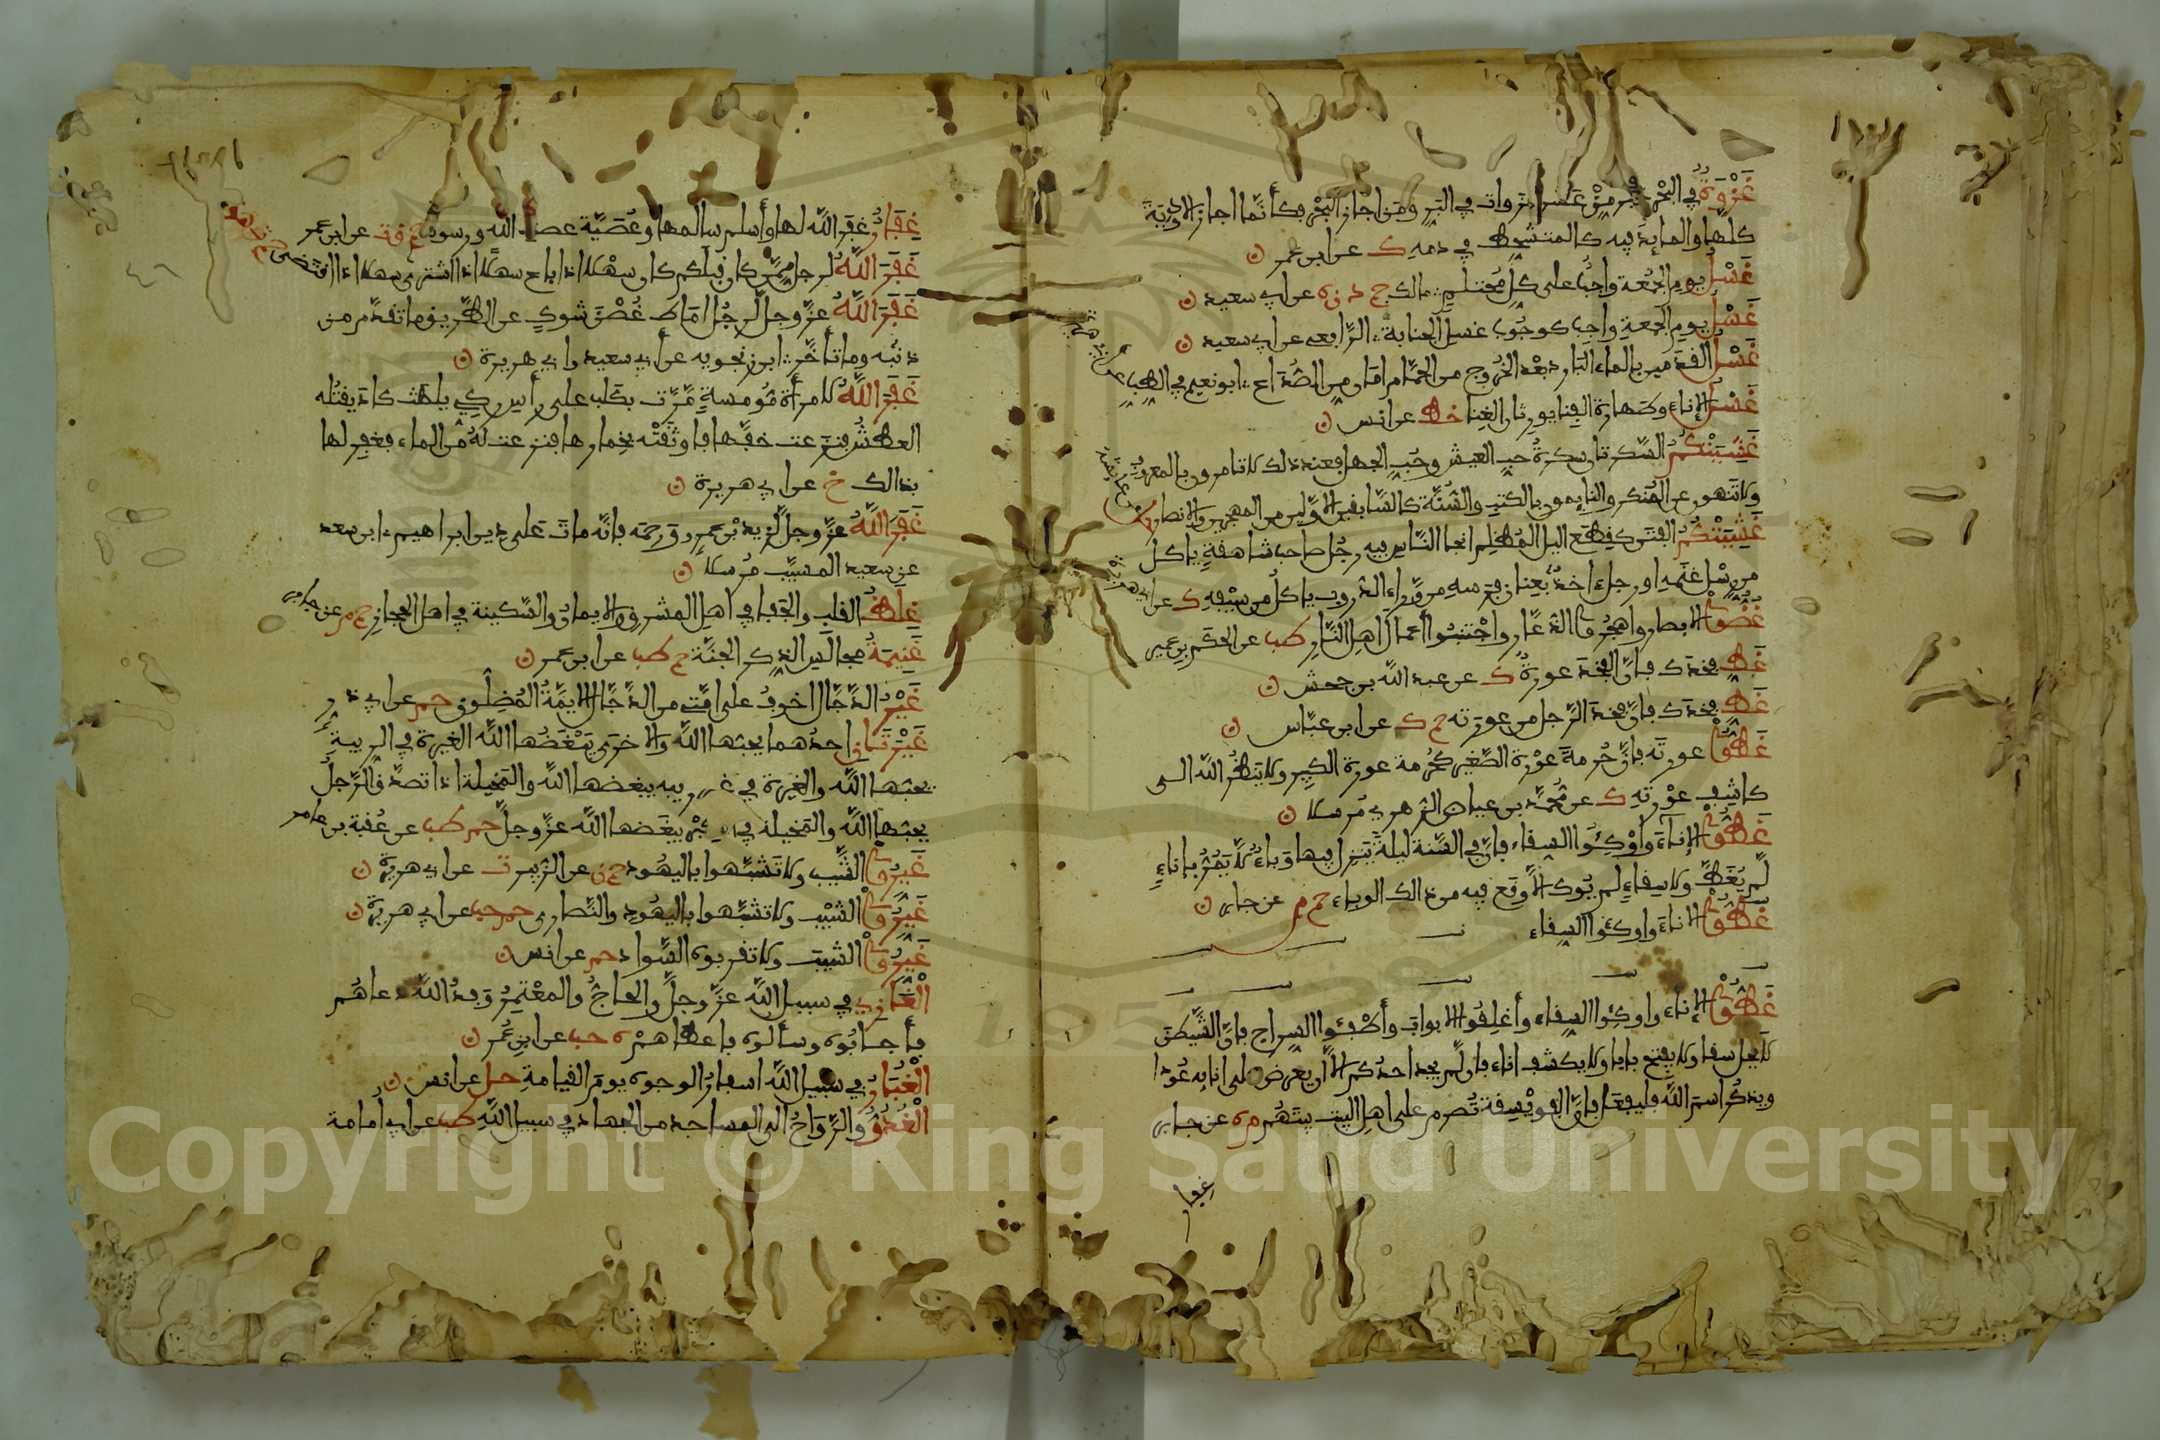 غَزْوَةٌ في البَحْرِ خير مِنْ عَشر غزوات في البَرِّ وَمَن اجاز البَحْر فكأنّما اجاز الاودِيَة
كلّها والمايِدُ فيه كالمتشحِّط في دمه ك عن ابن عمر
غَسْلُ يومِ الجُمُعة واجبٌ على كلِّ مُحْتلمٍ مالك حم د ن ه عن ابي سعيد
غَسْل يوم الجمعةِ واجِب كوجُوب غسل الجنابة الرّافعى عن ابي سعيد
غَسْل القدَمين بالماءِ البارد بعْد الخُروج من الحمّام امان من الصُّدَاع ابو نعيم في الطب عن ابي هريرة
غَسْل الإناء وطهارة الفِنا يورثان الغِنا خط عن انس
غَشِيَتْكُمُ السّكرتان سكرةُ حبِ العيش وحُبِ الجهل فعند ذلك لا تامرون بالمعروف
ولا تَنهون عن المُنكر والقايمون بالكتبِ والسُّنَّة كالسَّابقين الاوّلين من المهجرين والانصار
غَشِيَتْكُمُ الفتَن كقِطَعِ اليل المُظلِم انجا النّاس فيه رجُل صاحب شاهقةٍ ياكل
من رِسْل غنمه او رجل ءاخذٌ بعِنان فرسِه من وَّراء الدّروب ياكل من سيْفه ك عن ابي هريرة
غضُّوا الابصار واهجُروا الدّعّار واجْتنبُوا أعمال أهل النّار طب عن الحكم بن عمير
غَطِّ فخذك فانّ الفخذَ عورةٌ ك عن عبد الله بن جحش
غَطِّ فخذك فانّ فخذ الرّجل من عورته حم ك عن ابن عبّاس
غَطُّوا عورتَه فانَّ حُرمةَ عوْرة الصّغير كحُرمة عورة الكبير ولا يَنظُر الله الى
كاشِف عوْرتِه ك عن مُحمّد بن عياض الزهري مُرسلا
غَطُّوا الإناءَ وأوْكِئوا السِقاء فانّ في السّنة ليلةً يَنزل فيها وَباءٌ لا يمُرُّ بإناءٍ
لَم يُغطَّ ولا سِقاءٍ لم يُوك الا وقع فيه من ذالك الوباء حم م عن جابر
غَطُّوا الاناءَ واوكئوا السقاء
غَطُّوا الإناءَ واوكِئوا السِقاء وأغلِقُوا الابواب وأطْفِئوا السراج فانّ الشّيطن
لا يحل سقا ولا يفتح بابا ولا يكشف اناء فان لّم يجد احدُكم الّا ان يعرض على انايه عُودا
ويذكُر اسم الله فليفعل فانّ الفويْسِقة تُضرم على اهل البيت بيتَهُم م ه عن جابر
غفار
غِفَارٌ غفَر اللّه لها وأسلم سالمها وعُصَيّة عصت الله ورسوله حم ق ت عن ابن عمر
غَفَرَ اللهُ لرجل مّمّن كان قبلكم كان سهْلا اذا باع سهلًا اذا اشترى سهلا اذا اقتضى حم ت هق عن جابر
غَفَرَ اللهُ عزّ وجلّ لرجُل امَاط غُصْنَ شوكٍ عن الطّريق ما تقدّم من
ذنبه وما تأخّر ابن زنجويه عن أبي سعيد وابي هريرة
غَفَرَ اللّهُ لامرأة مُومسةٍ مَّرّت بكَلب على رأس ركيّ يلهَث كادَ يقتُله
العطشُ فنزَعت خفَّها فاوثَقتْه بخِمارها فنزعت لهُ من الماء فغفِر لها
بذالك خ عن ابي هريرة
غَفَرَ اللّهُ عزّ وجلّ لزيد بْن عمرٍو ورَحمَه فانّه ماتَ على دين ابراهيم ابن سعد
عن سعيد المسيّب مُرسلا
غِلَظُ القلب والجَفا في اهل المشرق والايمان والسّكينة في اهل الحجاز حم م عن جابر
غَنِيمَةُ مجالس الذكر الجنّة حم طب عن ابن عمر
غَيْرُ الدّجّال اخوفُ على امّتي من الدّجّال الايمّةُ المُضِلُّون حم عن ابي ذر
غَيْرَتَانِ احدُهما يحبّها اللّه والاخرى يَبْغَضُها اللّه الغيرة في الريبةِ
يحبّها الله والغيرة في غير ريبه يبغضها اللّه والمَخيلة اذا تصدّق الرّجلُ
يحبّها الله والمَخيلة في الكِبْر يبغضها اللّه عزّ وجلّ حم طب عن عُقبة بن عامر
غَيِّرُوا الشّيب ولا تَشَبَّهوا باليهُود حم ن عن الزّبير ت عن ابي هريرة
غَيِّرُوا الشّيْب ولا تشبّهوا باليهُود والنَّصارى حم حب عن ابي هريرة
غَيِّرُوا الشّيبَ ولا تقربوه السّواد حم عن انس
الْغَازِي في سبيل اللّه عزّ وجلّ والحاجُّ والمعْتمِرُ وَفدُ اللّه دعاهُم
فأجابُوه وسألوه فاعطاهمْ ه حب عن ابن عُمر
الْغُبَارُ في سبيل اللّه اسفارُ الوجوه يومَ القيامة حل عن انس
الْغُدُوُّ والرّوَاحُ الى المساجد من الجهاد في سبيل اللّه طب عن ابي أمامة